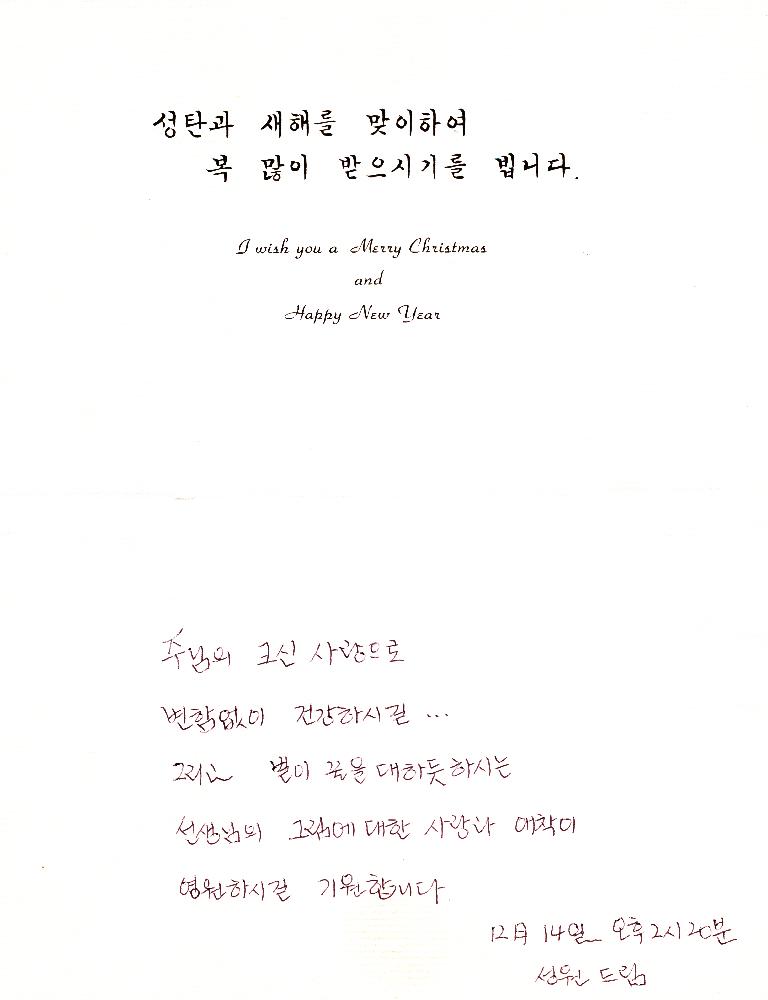 성탄과 새해를 맞이하여
복 많이 받으시기를 빕니다.
I wish you a Merry Christmas
and
Happy New Year
주님의 크신 사랑으로
변함없이 건강하시길 ...
그리고 별이 꿈을 대하듯 하시는
선생님의 그림에 대한 사랑과 애착이
영원하시길 기원합니다
12月 14일 오후 2시 20분
성원 드림